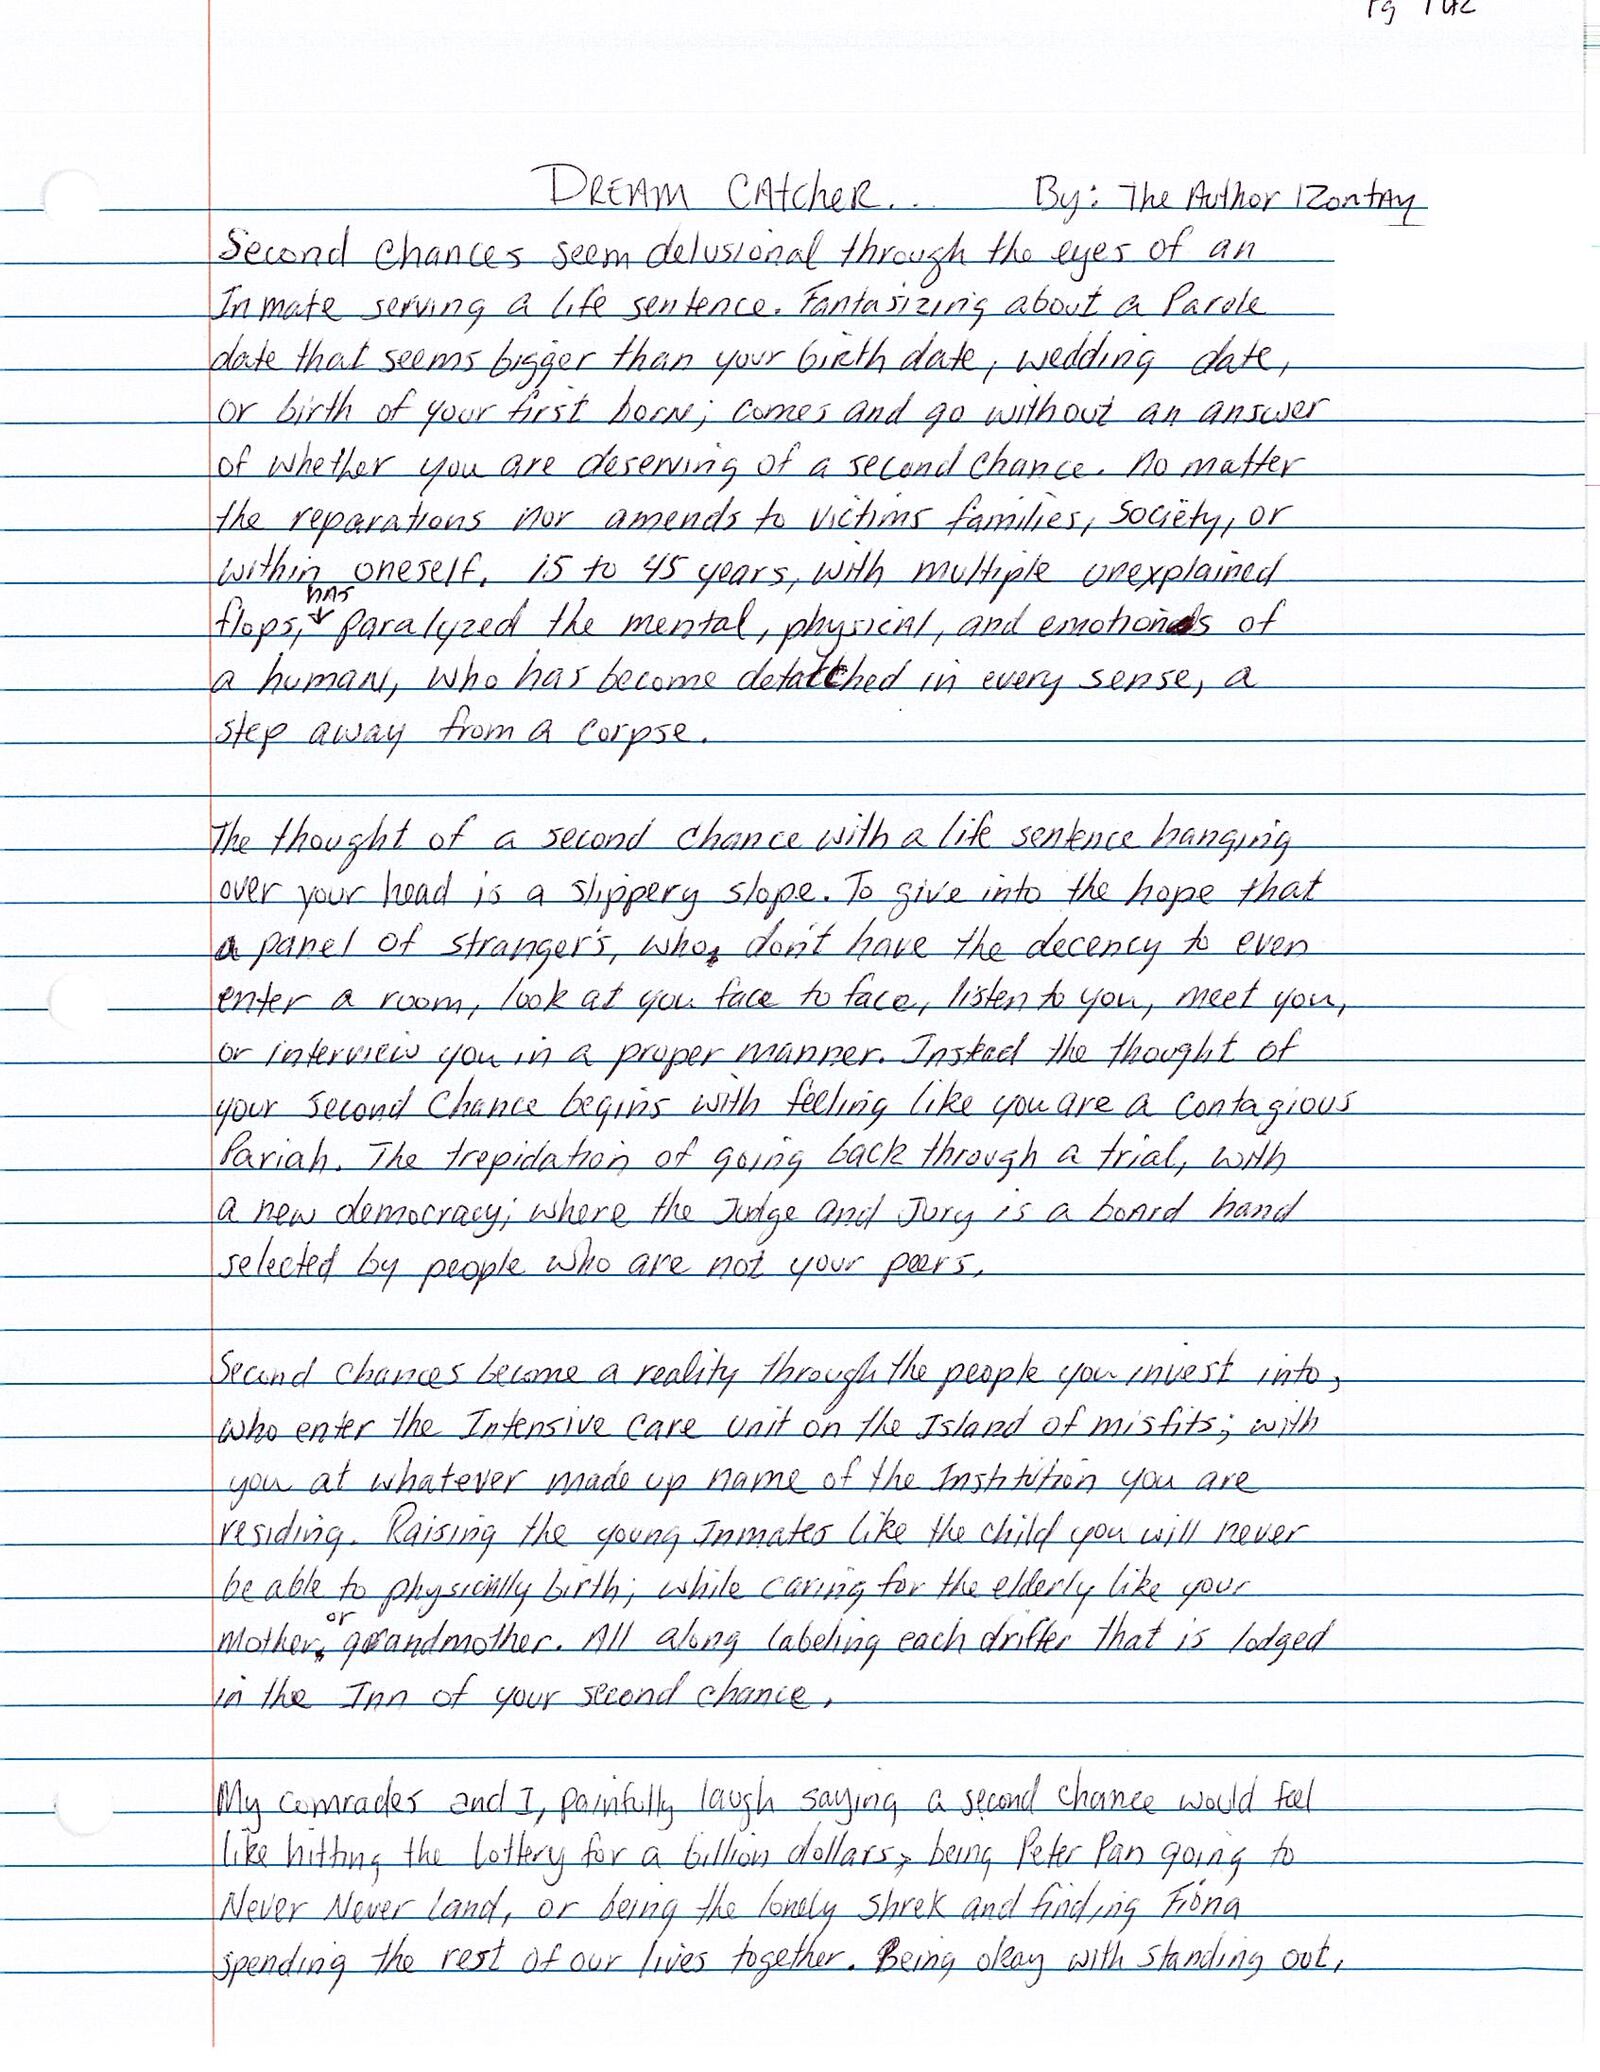 Pg 1 of 2
DREAM CAtcheR... By: The Author IZontAy
Second Chances seem delusional through the eyes of an
Inmate serving a life sentence. Fantasizing about a Parole
date that seems bigger than your birth date, wedding date,
or birth of your first born; comes and go without an answer
of whether you are deserving of a second chance. No matter
the reparations nor amends to victims families, Society, or
within oneself. 15 to 45 years, with multiple unexplained
flops, has paralyzed the mental, physical, and emotionals of
a human, who has become detatched in every sense, a
step away from a corpse.
The thought of a second chance with a life sentence hanging
over your head is a slippery slope. To give into the hope that
a panel of stranger's, who don't have the decency to even
enter a room, look at you face to face, listen to you, meet you,
or interview you in a proper manner. Instead the thought of
your second chance begins with feeling like you are a contagious
Pariah. The trepidation of going back through a trial, with
a new democracy; where the Judge and Jury is a board hand
selected by people who are not your peers.
Second chances become a reality through the people you invest into,
who enter the Intensive Care Unit on the Island of misfits; with
you at whatever made up name of the Institution you are
residing. Raising the young Inmates like the child you will never
be able to physically birth; while caring for the elderly like your
Mother, or grandmother. All along labeling each drifter that is lodged
in the Inn of your second chance.
My comrades and I, painfully laugh saying a second chance would feel
like hitting the lottery for a billion dollars, being Peter Pan going to
Never Never Land, or being the lonely Shrek and finding Fiona
spending the rest of our lives together. Being okay with standing out,